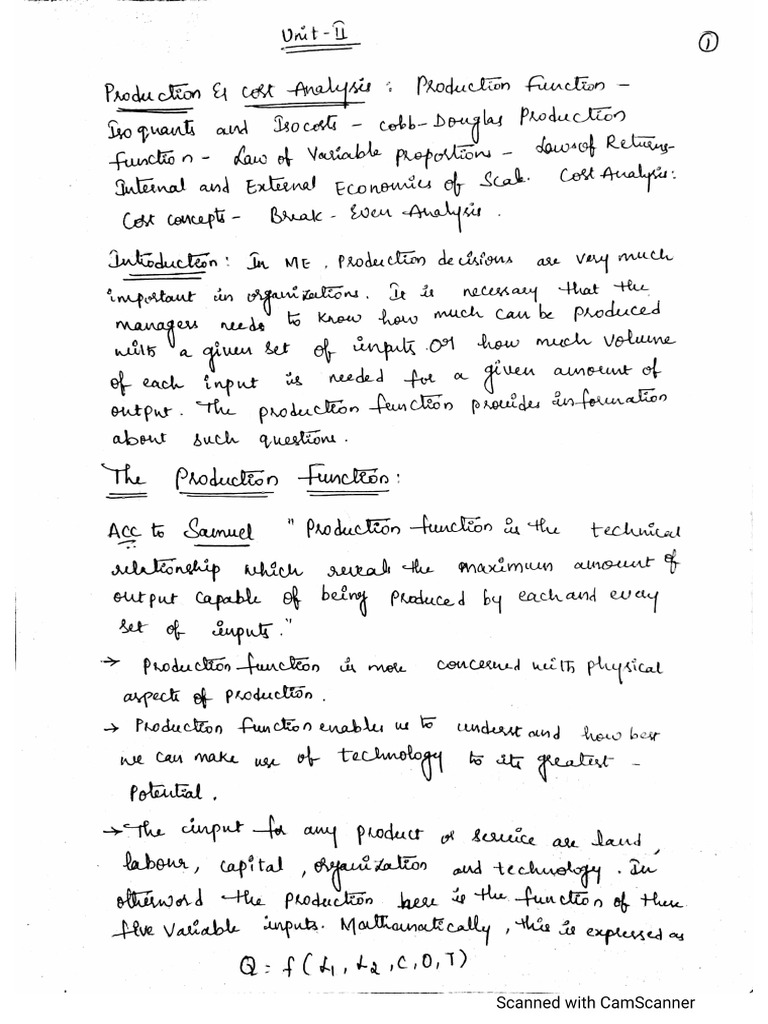 Unit-II
1
Production & cost Analysis: Production Function –
Isoquants and Isocosts – cobb-Douglas Production
function – Law of Variable proportions – Laws of Returns-
Internal and External Economies of Scale. Cost Analysis:
Cost concepts – Break-Even Analysis.
Introduction: In ME, Production decisions are very much
important in organizations. It is necessary that the
managers needs to know how much can be produced
with a given set of inputs or how much volume
of each input is needed for a given amount of
output. The production function provides information
about such questions.
The Production Function:
Acc to Samuel "Production function is the technical
relationship which reveals the maximum amount of
output capable of being produced by each and every
set of inputs."
→ Production function is more concerned with physical
aspects of production.
→ Production function enables us to understand how best
we can make use of technology to its greatest –
Potential.
→ The input for any product or service are land,
labour, capital, organization and technology. In
otherword the production here is the function of these
five variable inputs. Mathamatically, this is expressed as
Q = f(L1, L2, C, O, T)
Scanned with CamScanner